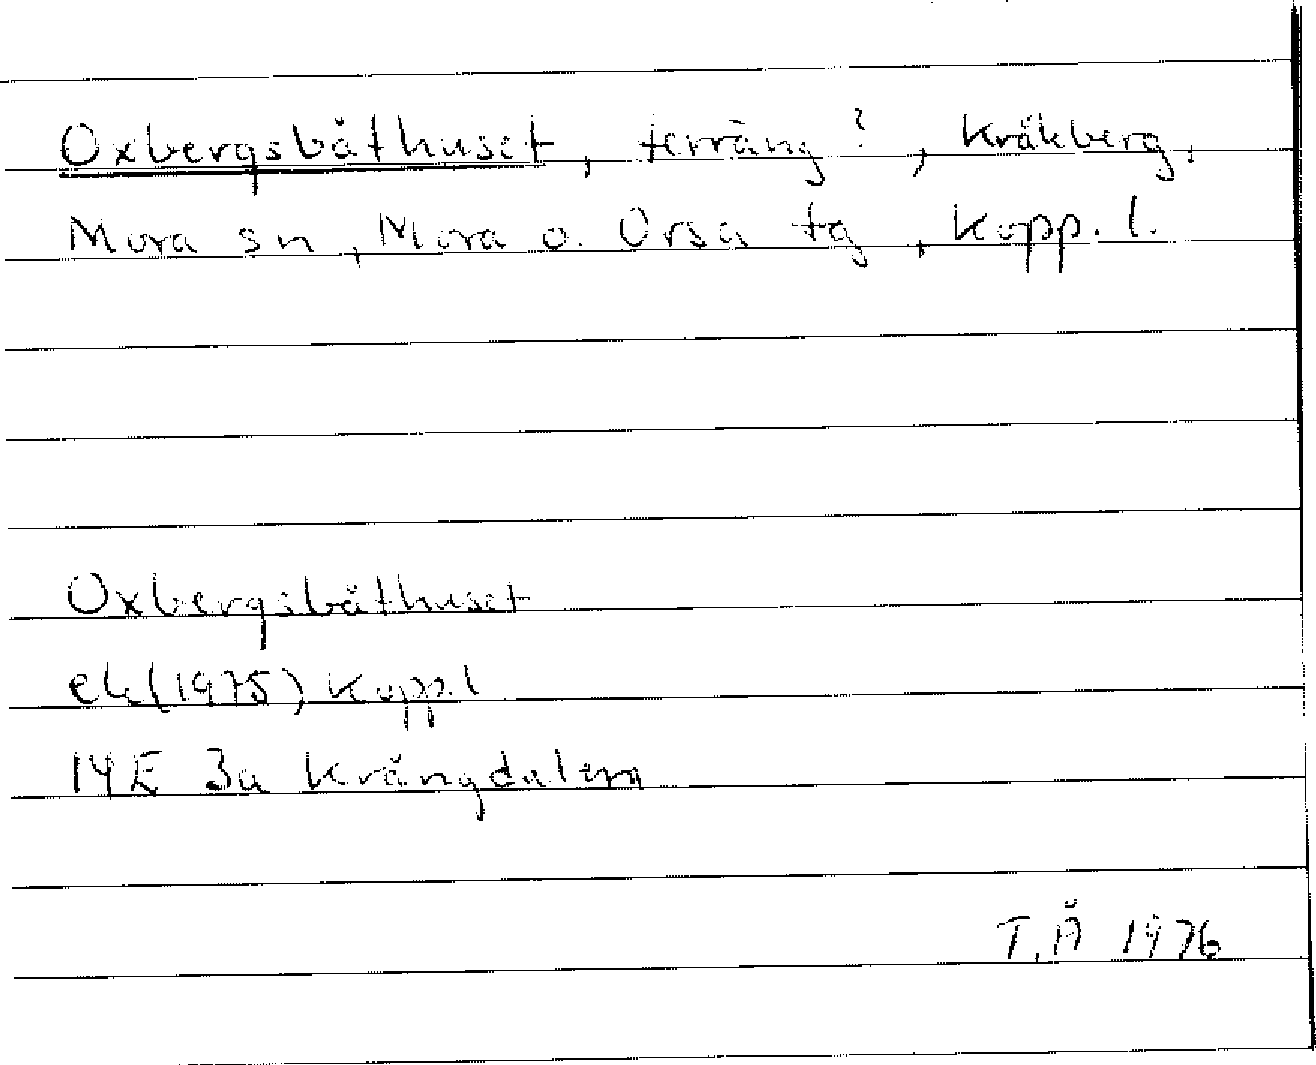 Oxbergsbåthuset, terräng?, Kråkberg,
Mora sn, Mora o. Orsa tg, Kopp. l.
Oxbergsbåthuset
ek (1975) Kopp.l
14E 3a Krångdalem
T.Å 1976